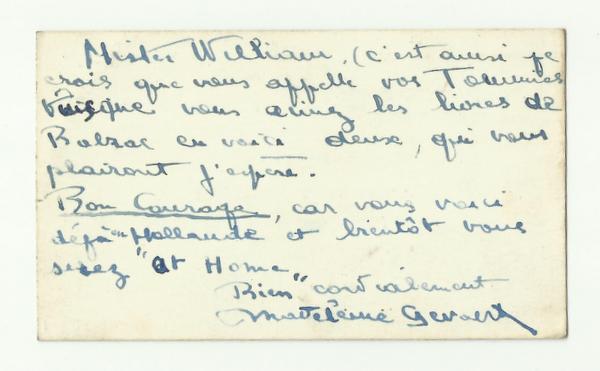 Mister William, (c'est ainsi je
crois que vous appelle vos Tommies
Puisque vous aimez les livres de
Balzac en voici deux, qui vous
plairont j'espère.
Bon Courage, car vous voici
déjà en Hollande et bientôt vous
serez "at Home"
Bien cordialement
Madeleine Gevaert